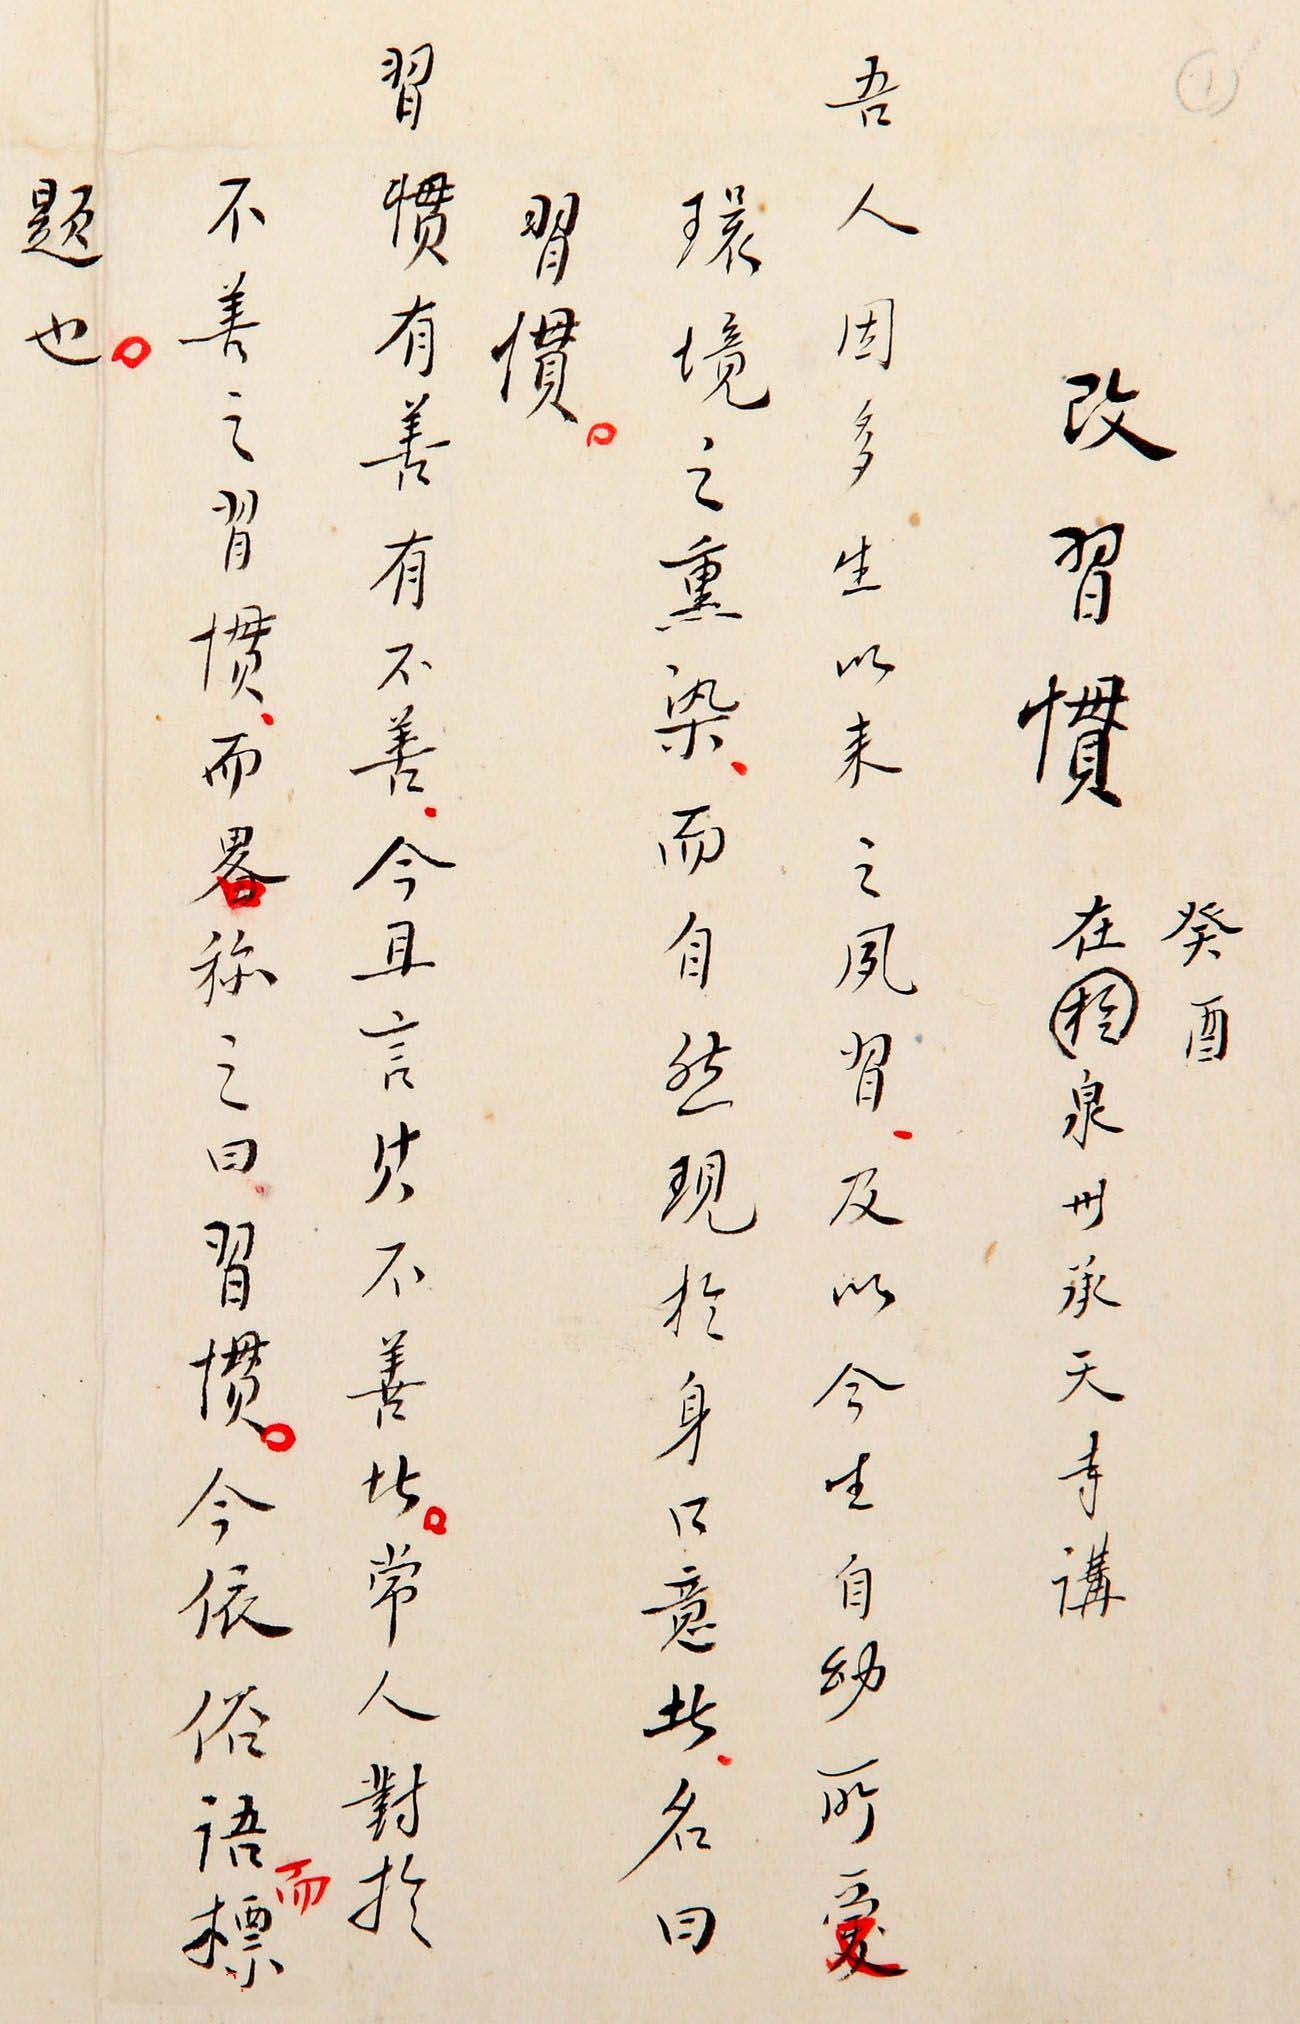 1
癸酉
改習慣 在於泉州承天寺講
吾人因多生以来之夙習、及以今生自幼所受
環境之熏染、而自然現於身口意者、名曰
習慣。
習慣有善有不善、今且言其不善者。常人對於
不善之習慣、而畧称之曰、習慣。今依俗語而標
題也。